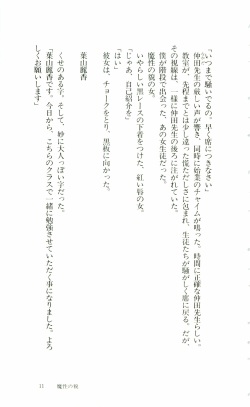 「いつまで騒いでるの。早く席につきなさい」
仲田先生の厳しい声が響き、同時に始業のチャイムが鳴った。時間に正確な仲田先生らしい。
教室が、先程までとは少し違った慌ただしさに包まれ、生徒たちが騒がしく席に戻る。だが、
その視線は、一様に仲田先生の後ろに注がれていた。
僕が階段で出会った、あの女生徒だった。
魔性の貌の女。
いやらしい黒レースの下着をつけた、紅い唇の女。
「じゃあ、自己紹介を」
「はい」
彼女は、チョークをとり、黒板に向かった。
葉山麗香
くせのある字。そして、妙に大人っぽい字だった。
「葉山麗香です。今日から、こちらのクラスで一緒に勉強させていただく事になりました。よろ
しくお願いします」
11 魔性の貌